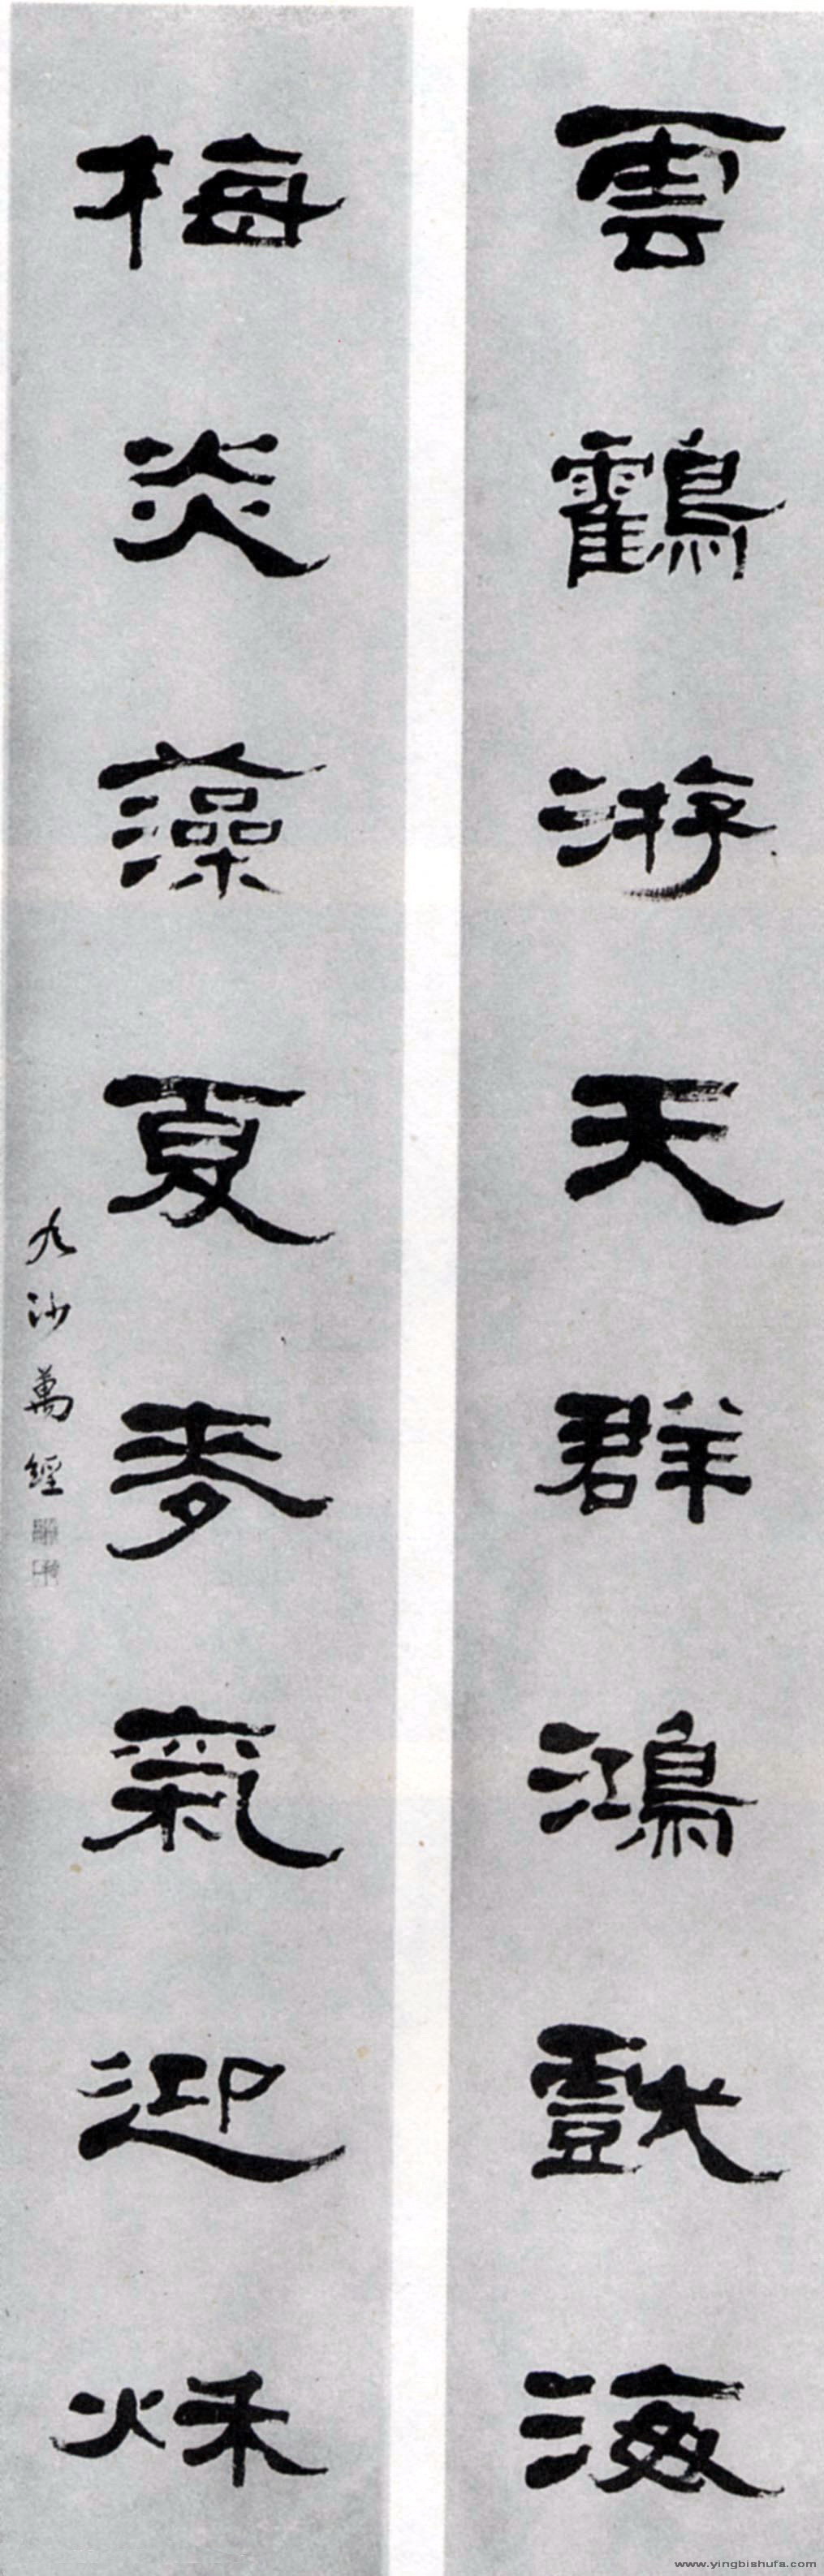 雲鶴游天群鴻戲海
梅炎藻夏麥氣迎秌
九沙萬經
www.yingbishufa.com